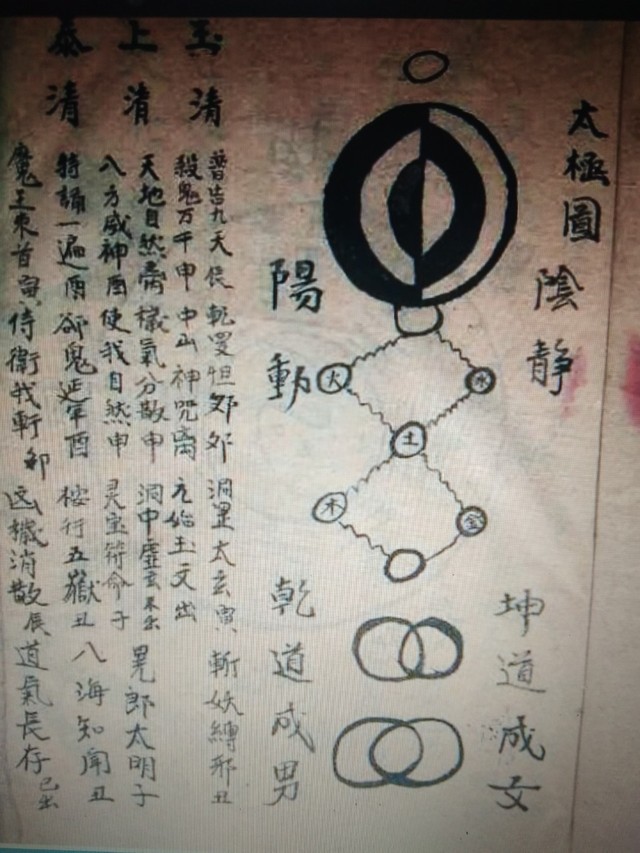 太極圖
陰靜
陽動
火
水
土
木
金
坤道成女
乾道成男
玉清
上清
泰清
普告九天 乾 怛 洞罡太玄寅 斬妖縛邪丑
殺鬼万千申 中山神咒离 元始玉文出
天地自然 穢氣分散申 洞中虛玄未出 晃郎太明子
八方威神酉 使我自然申 灵宝符命子
持誦一遍酉 卻鬼延年酉 桉行五嶽丑 八海知闻丑
魔王束首寅 侍衛我軒卯 凶穢消散辰 道氣長存巳出